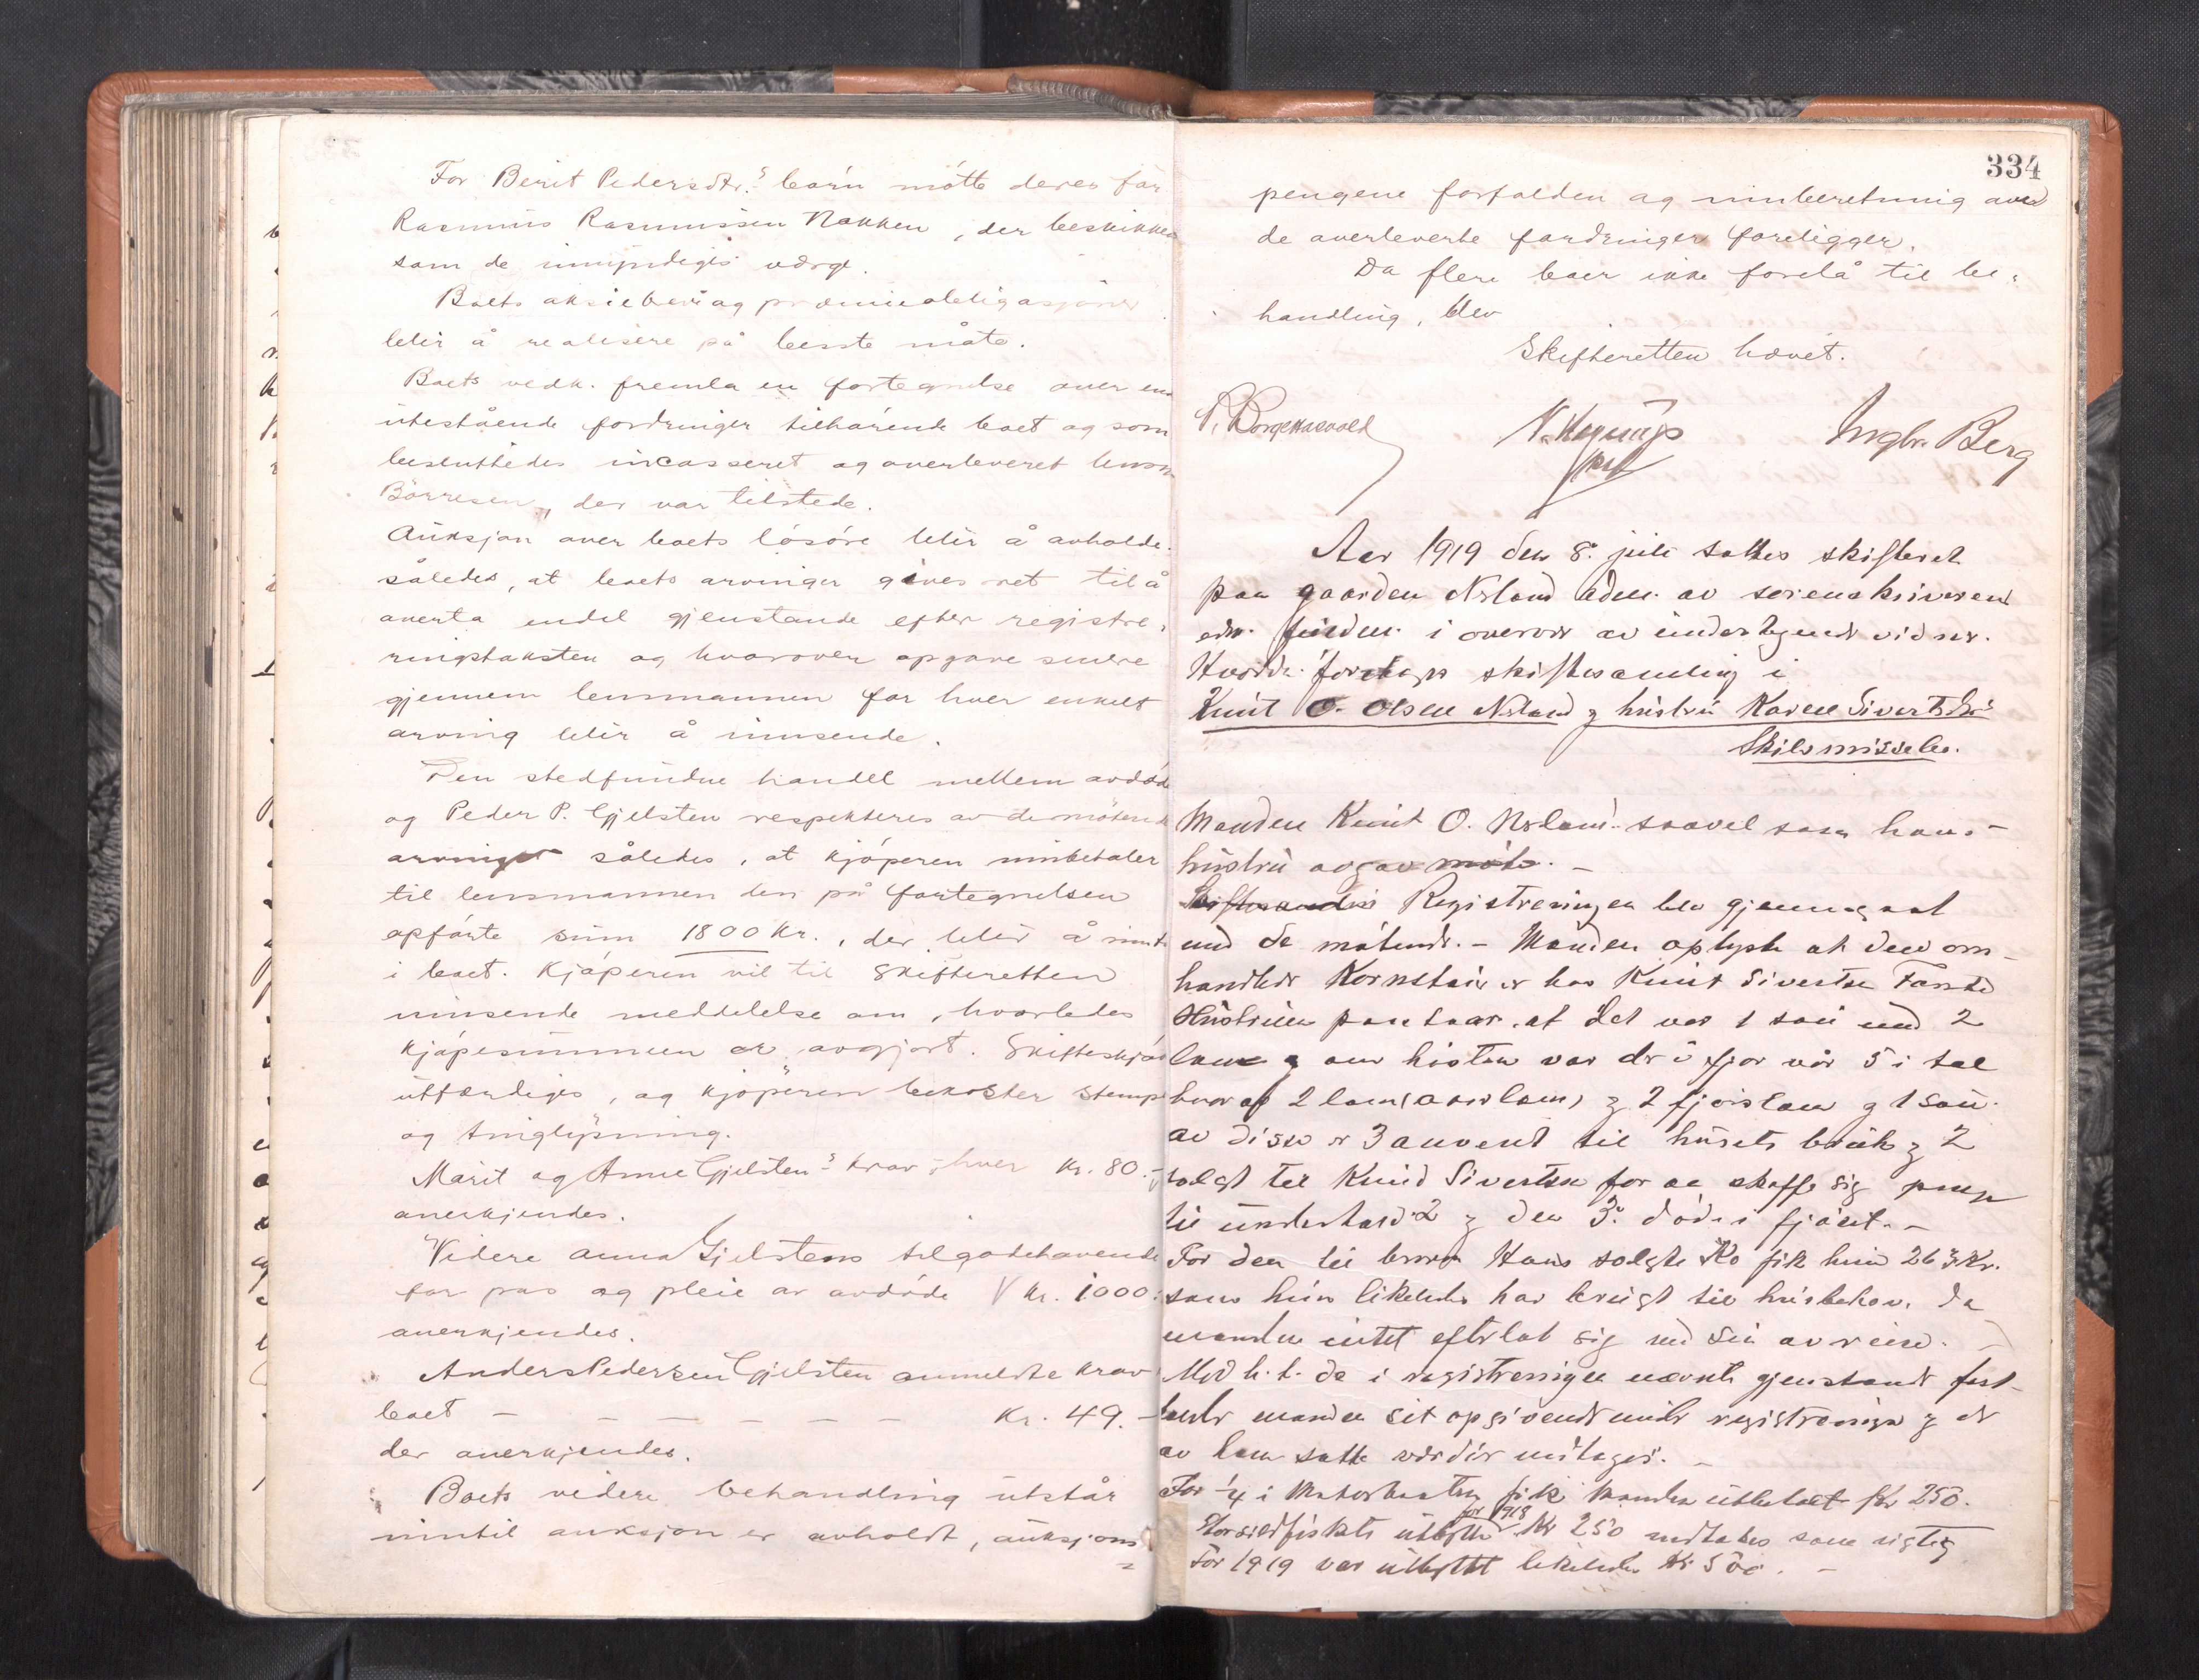 For Berit Pedersdtr.s barn møtte deres far
Rasmus Rasmussen Nakken, der beskikkes
som de umyndiges værge.
Boets aksiebrev og præmieobligasjoner
blir å realisere på beste måte.
Boets vedk. fremla en fortegnelse over en
utestående fordringer tilhørende boet og som
besluttedes incasseret og overleveret
Börresen, der var tilstede.
Auksjon over boets løsøre blir å avholde
således, at boets arvinger gives ret til å
overta endel gjenstande efter registre-
ringstaksten og hvorover opgave senere
gjennem lensmannen for hver enkelt
arving blir å innsende.
Den stedfundne handel mellem avdøde
og Peder P. Gjelsten respekteres av de møtende
arvinger således, at kjøperen innbetaler
til lensmannen den på fortegnelsen
opførte sum 1800 kr., der blir å innta
i boet. Kjøperen vil til Skifteretten
innsende meddelelse om, hvorledes
kjøpesummen er avgjort. Skifteskjøte
utfærdiges, og kjøperen bekoster stempel
og tinglysning.
Marit og Anne Gjelstens krav, hver kr. 80.-
anerkjendes.
Videre Anna Gjelstens tilgodehavende
for pas og pleie av avdøde kr. 1000:
anerkjendes.
Anders Pedersen Gjelsten anmeldte krav
boet — — — — — — kr. 49.-
der anerkjendes.
Boets videre behandling utstår
inntil auksjon er avholdt, auksjons-
334
pengene forfalden og innberetning over
de overleverte fordringer foreligger.
Da flere boer ikke forelå til be-
handling, blev
Skifteretten hævet.
Ingbr. Berg
Aar 1919 den 8. juli sattes skifteret
paa gaarden Nsland adm. av sorenskriveren
i overvær av undertegnede vidner.
Hvorda foretoges skiftesamling i
Knut O. Olsen Nsland g hustru Karen Sivertsdr
Skilsmissebo.
Manden Knut O. Nsland saavel som hans
hustru avgav møte. —
Registreringen blev gjennegaat
med de møtende. — Manden oplyste at den om-
handlede er hos Knut Sivertsen
Hustruen paastaar at det var 1 sau med 2
lam g om høsten var der i fjor vår 5 i tal
hvoraf 2 lam g 2 fjorslam g 1 sau.
av disse er 3 anvent til husets bruk g 2
solgt til Knud Sivertsen for aa skaffe sig penge
til underhold g den 3. døde i fjøset. —
For den til Hans solgte Ko fik hun 263 Kr.
som hun likeledes har brugt til husbehov, da
manden intet efterlot sig ved sin avreise. —
Med h. t. de i registreringen nævnte gjenstande fast-
holdt manden sit opgivende under registreringen g de
av ham satte værdier medtages. —
For ¼ i Motorbaaten fik Manden utbetalt Kr 250.
Storsildfiskets utbytte for 1918 Kr 250 medtakes som rigtig
For 1919 var utbyttet likeledes Kr 500. —